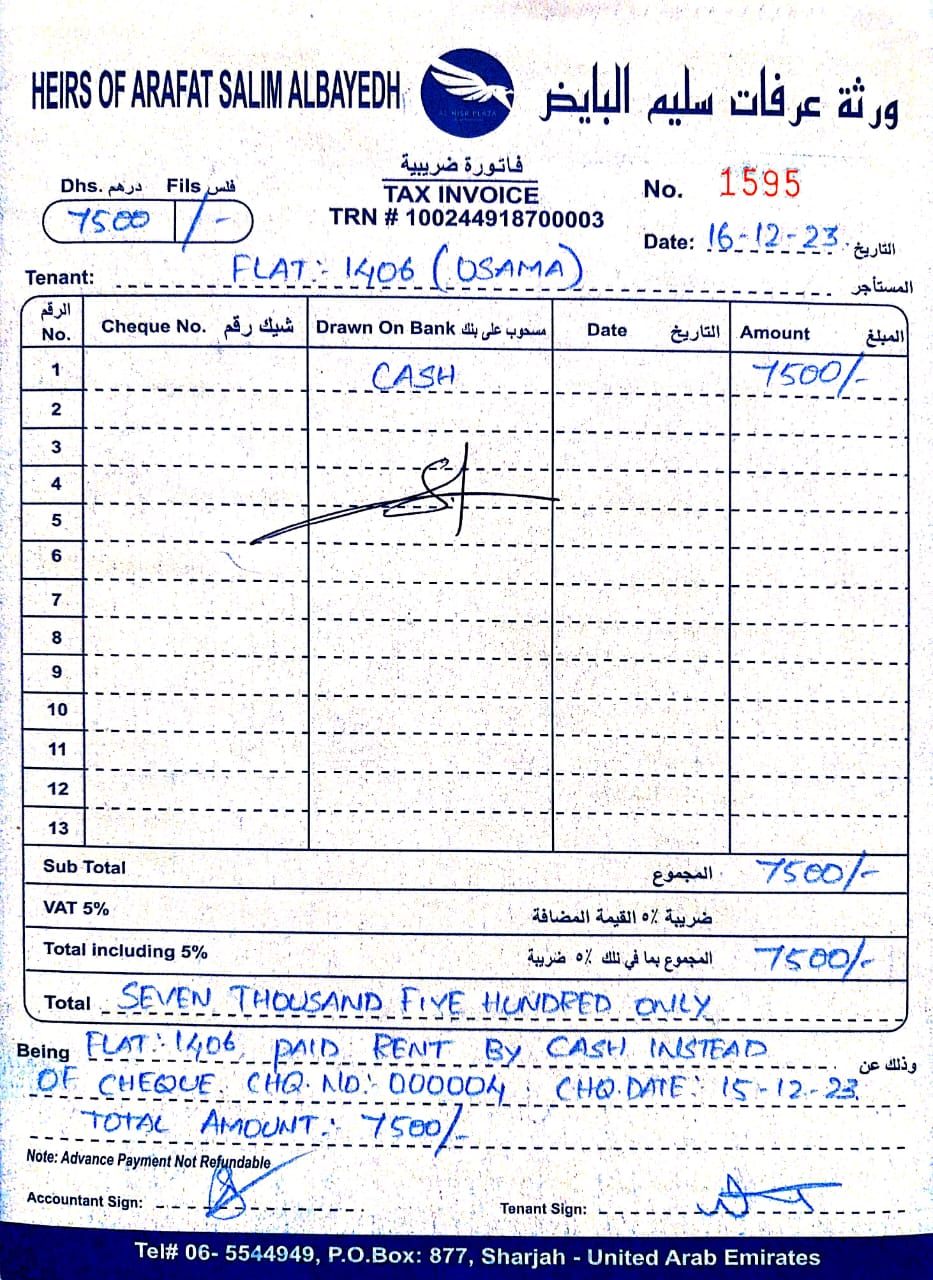 HEIRS OF ARAFAT SALIM ALBAYEDH
AL NISR PLAZA
ورثة عرفات سليم البايض
فاتورة ضريبية
TAX INVOICE
TRN # 100244918700003
Dhs. درهم Fils فلس
7500 /-
No. 1595
Date: 16-12-23 التاريخ
Tenant: FLAT: 1406 (OSAMA) المستأجر
الرقم No. Cheque No. شيك رقم Drawn On Bank مسحوب على بنك Date التاريخ Amount المبلغ
1 CASH 7500/-
2
3
4
5
6
7
8
9
10
11
12
13
Sub Total المجموع 7500/-
VAT 5% ضريبة ٥٪ القيمة المضافة
Total including 5% المجموع بما في ذلك ٥٪ ضريبة 7500/-
Total SEVEN THOUSAND FIVE HUNDRED ONLY
Being FLAT: 1406, PAID RENT BY CASH INSTEAD وذلك عن
OF CHEQUE. CHQ. NO:- 000004, CHQ.DATE: 15-12-23.
TOTAL AMOUNT:- 7500/-
Note: Advance Payment Not Refundable
Accountant Sign:
Tenant Sign:
Tel# 06- 5544949, P.O.Box: 877, Sharjah - United Arab Emirates